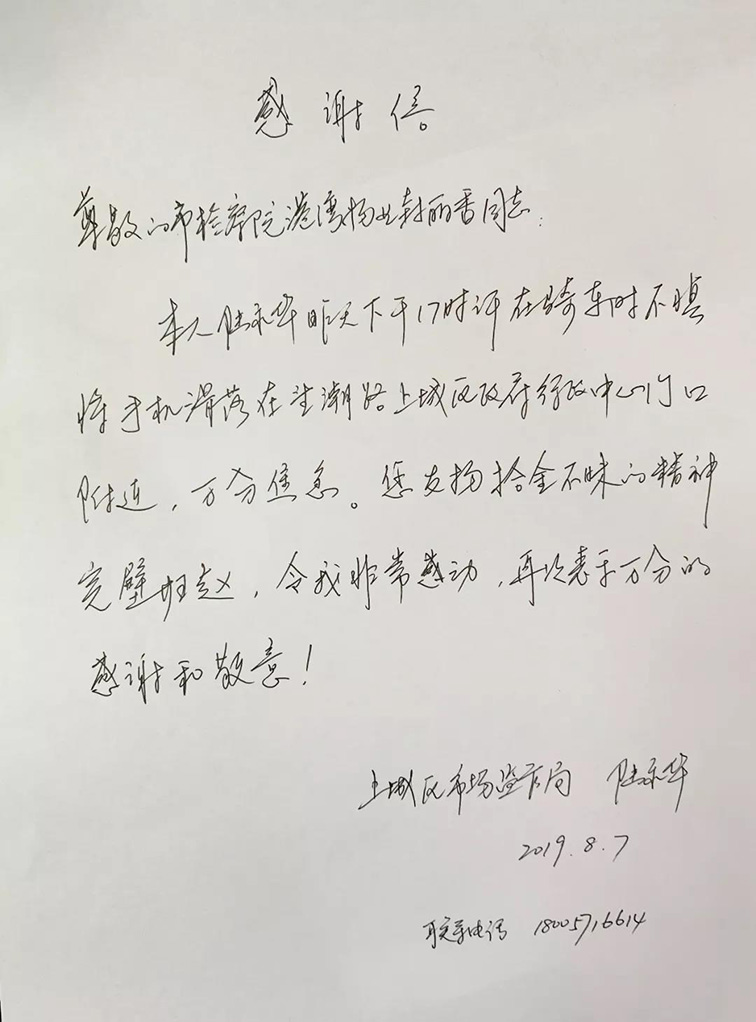 感谢信
尊敬的市检察院港湾物业封丽香同志:
本人陆永华昨天下午17时许在骑车时不慎
将手机滑落在望潮路上城区政府行政中心门口
附近,万分焦急。您发扬拾金不昧的精神
完璧归赵,令我非常感动,再次表示万分的
感谢和敬意!
上城区市场监管局 陆永华
2019.8.7
联系电话 18005716614